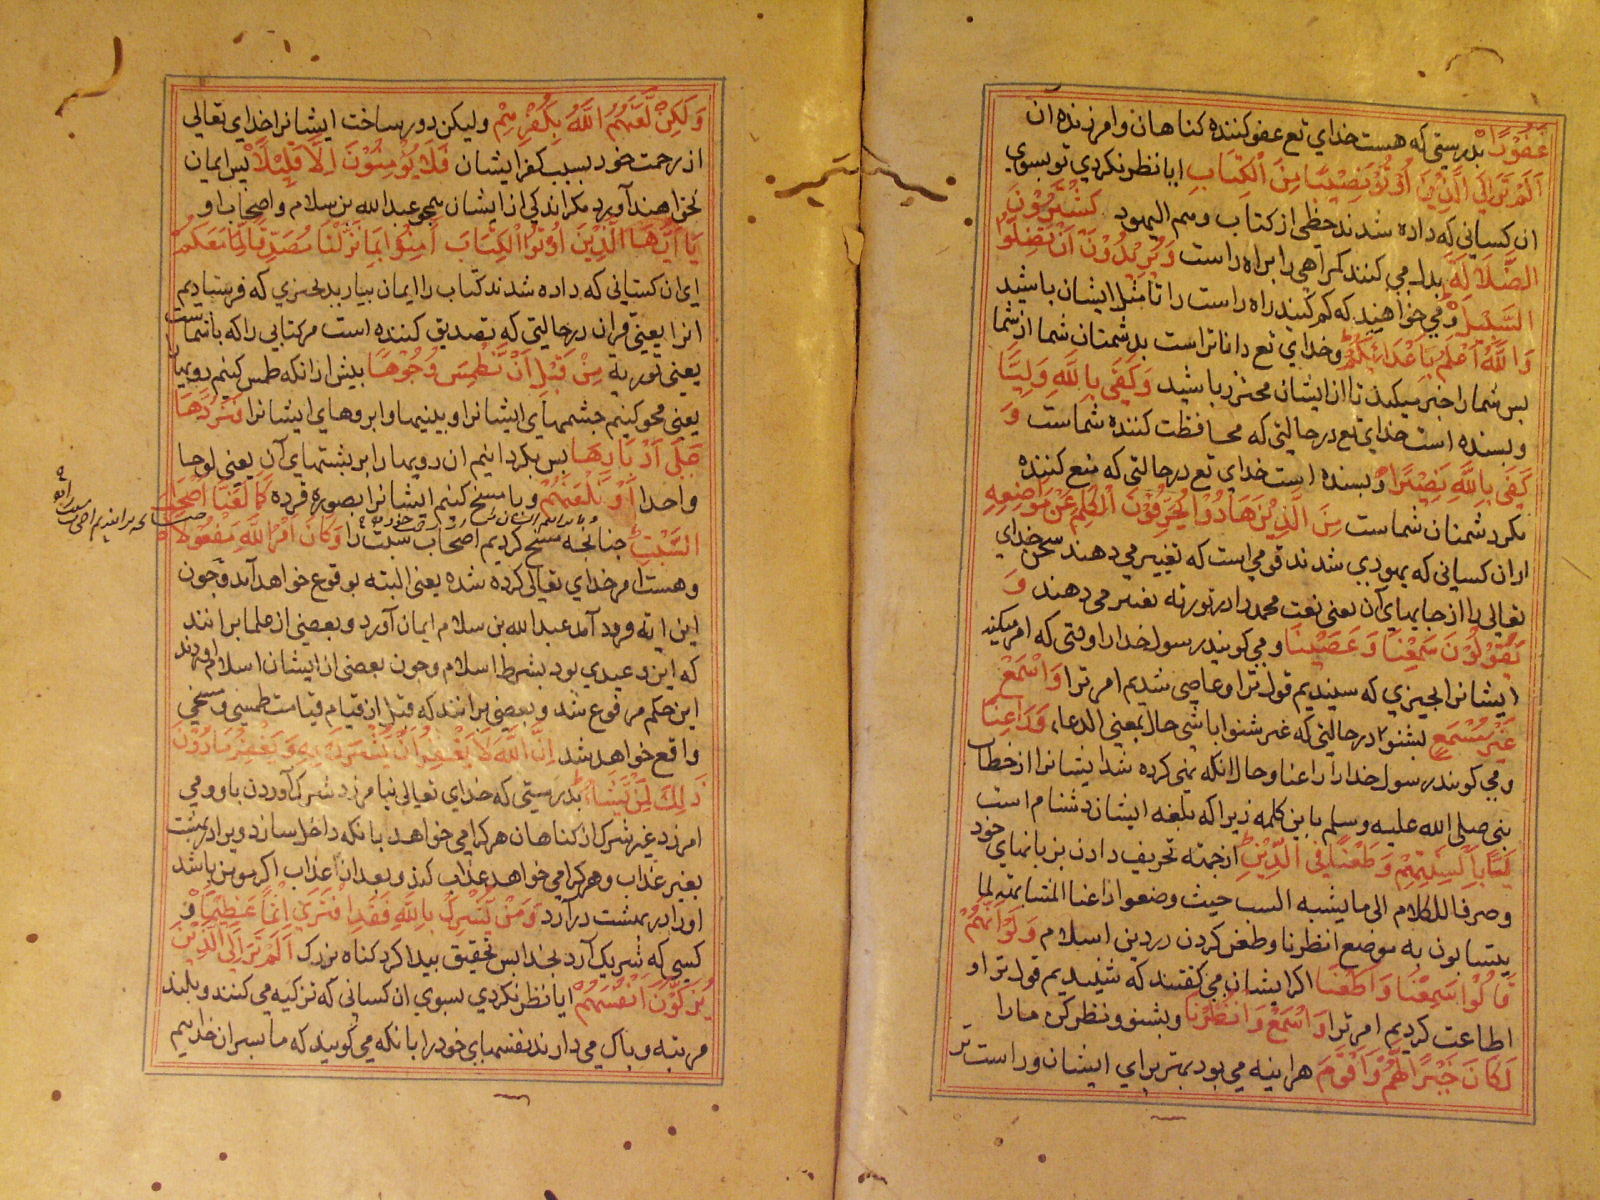 غَفُورًا بدرستی که هست خدای تع عفو کننده کناهان و امرزنده آن
اَلَمْ تَرَ اِلَی الَّذِیْنَ اُوْتُوْ نَصِیْبًا مِنَ الْکِتَابِ ایا نظر نکردی تو بسوی
ان کسانی که داده شدند حظی از کتاب وهم الیهود یَشْتَرُوْنَ
الضَّلَالَةَ بدل می کنند کمراهی را براه راست وَیُرِیْدُوْنَ اَنْ تَضِلُّوْ
السَّبِیْلَ ومی خواهند که کم کنند راه راست را تا مثل ایشان باشید
وَاللّٰهُ اَعْلَمُ بِاَعْدَائِکُمْ وخدای تع داناتر است بدشمنان شما از شما
بس شما را خبر میکند تا از ایشان محترز باشید وَکَفٰی بِاللّٰهِ وَلِیًّا
و بسنده است خدای تع در حالتی که محافظت کننده شماست وَ
کَفٰی بِاللّٰهِ نَصِیْرًا و بسنده است خدای تع در حالتی که منع کننده
مکر دشمنان شماست مِنَ الَّذِیْنَ هَادُوْا یُحَرِّفُوْنَ الْکَلِمَ عَنْ مَوَاضِعِهٖ
از ان کسانی که یهودی شدند قومی است که تغییر می دهند سخن خدای
تعالی را از جایهای آن یعنی نعت محمد را در توریة تغییر می دهند وَ
یَقُوْلُوْنَ سَمِعْنَا وَعَصَیْنَا ومی کویند رسول خدا را وقتی که امر میکند
ایشانرا بچیزی که شنیدیم قول ترا وعاصی شدیم امر ترا وَاسْمَعْ
غَیْرَ مُسْمَعٍ بشنو در حالتی که غیر شنوا باشی حال بمعنی الدعاء وَرَاعِنَا
ومی کویند رسول خدا را راعنا وحال انکه نهی کرده شد ایشانرا از خطاب
نبی صلی الله علیه وسلم باین کلمه زیرا که بلغه ایشان دشنام است
لَیًّا بِاَلْسِنَتِهِمْ وَطَعْنًا فِی الدِّیْنِ از جهة تحریف دادن بزبانهای خود
وصرفا للکلام الی مایشبه السب حیث وضعوا راعنا المشابهة لما
یتسابون به موضع انظرنا وطعن کردن در دین اسلام وَلَوْ اَنَّهُمْ
قَالُوْا سَمِعْنَا وَاَطَعْنَا اکر ایشان می کفتند که شنیدیم قول ترا و
اطاعت کردیم امر ترا وَاسْمَعْ وَانْظُرْنَا وبشنو ونظر کن مارا
لَکَانَ خَیْرًا لَهُمْ وَاَقْوَمَ هراینه می بود بهتر برای ایشان وراست تر
وَلٰکِنْ لَعَنَهُمُ اللّٰهُ بِکُفْرِهِمْ ولیکن دور ساخت ایشانرا خدای تعالی
از رحمت خود بسبب کفر ایشان فَلَا یُؤْمِنُوْنَ اِلَّا قَلِیْلًا پس ایمان
نخواهند آورد مکر اندکی از ایشان همچو عبد الله بن سلام واصحاب او
یَا اَیُّهَا الَّذِیْنَ اُوْتُوا الْکِتَابَ اٰمِنُوْا بِمَا نَزَّلْنَا مُصَدِّقًا لِمَا مَعَکُمْ
ای ان کسانی که داده شدند کتاب را ایمان بیارید بچیزی که فرستادیم
انرا یعنی قران در حالتی که تصدیق کننده است مر کتابی را که باشماست
یعنی توریة مِنْ قَبْلِ اَنْ نَطْمِسَ وُجُوْهًا پیش از انکه طمس کنیم رویها را
یعنی محو کنیم چشمهای ایشانرا وبینیها وابروهای ایشانرا فَنَرُدَّهَا
عَلٰی اَدْبَارِهَا بس بکردانیم ان رویها را بر پشتهای آن یعنی لوحا
واحدا اَوْ نَلْعَنَهُمْ ویا مسخ کنیم ایشانرا بصورة قرده کَمَا لَعَنَّا اَصْحَابَ
السَّبْتِ چنانچه مسخ کردیم اصحاب سبت را وَکَانَ اَمْرُ اللّٰهِ مَفْعُوْلًا
وهست امر خدای تعالی کرده شده یعنی البته بوقوع خواهد آمد وچون
این ایه فرود آمد عبد الله بن سلام ایمان آورد وبعضی از علما برانند
که این وعیدی بود بشرط اسلام وچون بعضی از ایشان اسلام اوردند
این حکم مرفوع شد وبعضی برانند که قبل از قیام قیامت طمسی ومسخی
واقع خواهد شد اِنَّ اللّٰهَ لَا یَغْفِرُ اَنْ یُشْرَکَ بِهٖ وَیَغْفِرُ مَادُوْنَ
ذٰلِکَ لِمَنْ یَشَاءُ بدرستی که خدای تعالی نیامرزد شرک آوردن باو ومی
امرزد غیر شرک از کناهان هر کرا می خواهد بانکه داخل سازد ویرا در بهشت
بغیر عذاب وهر کرا می خواهد عذاب کند وبعد از عذاب اکر مومن باشد
اورا در بهشت در آرد وَمَنْ یُشْرِکْ بِاللّٰهِ فَقَدِ افْتَرٰی اِثْمًا عَظِیْمًا و
کسی که شریک آرد بخدا بس تحقیق پیدا کرد کناه بزرک اَلَمْ تَرَ اِلَی الَّذِیْنَ
یُزَکُّوْنَ اَنْفُسَهُمْ ایا نظر نکردی بسوی ان کسانی که تزکیه می کنند وبلند
مرتبه وپاک می دارند نفسهای خود را بانکه می کویند که ما پسران خدائیم